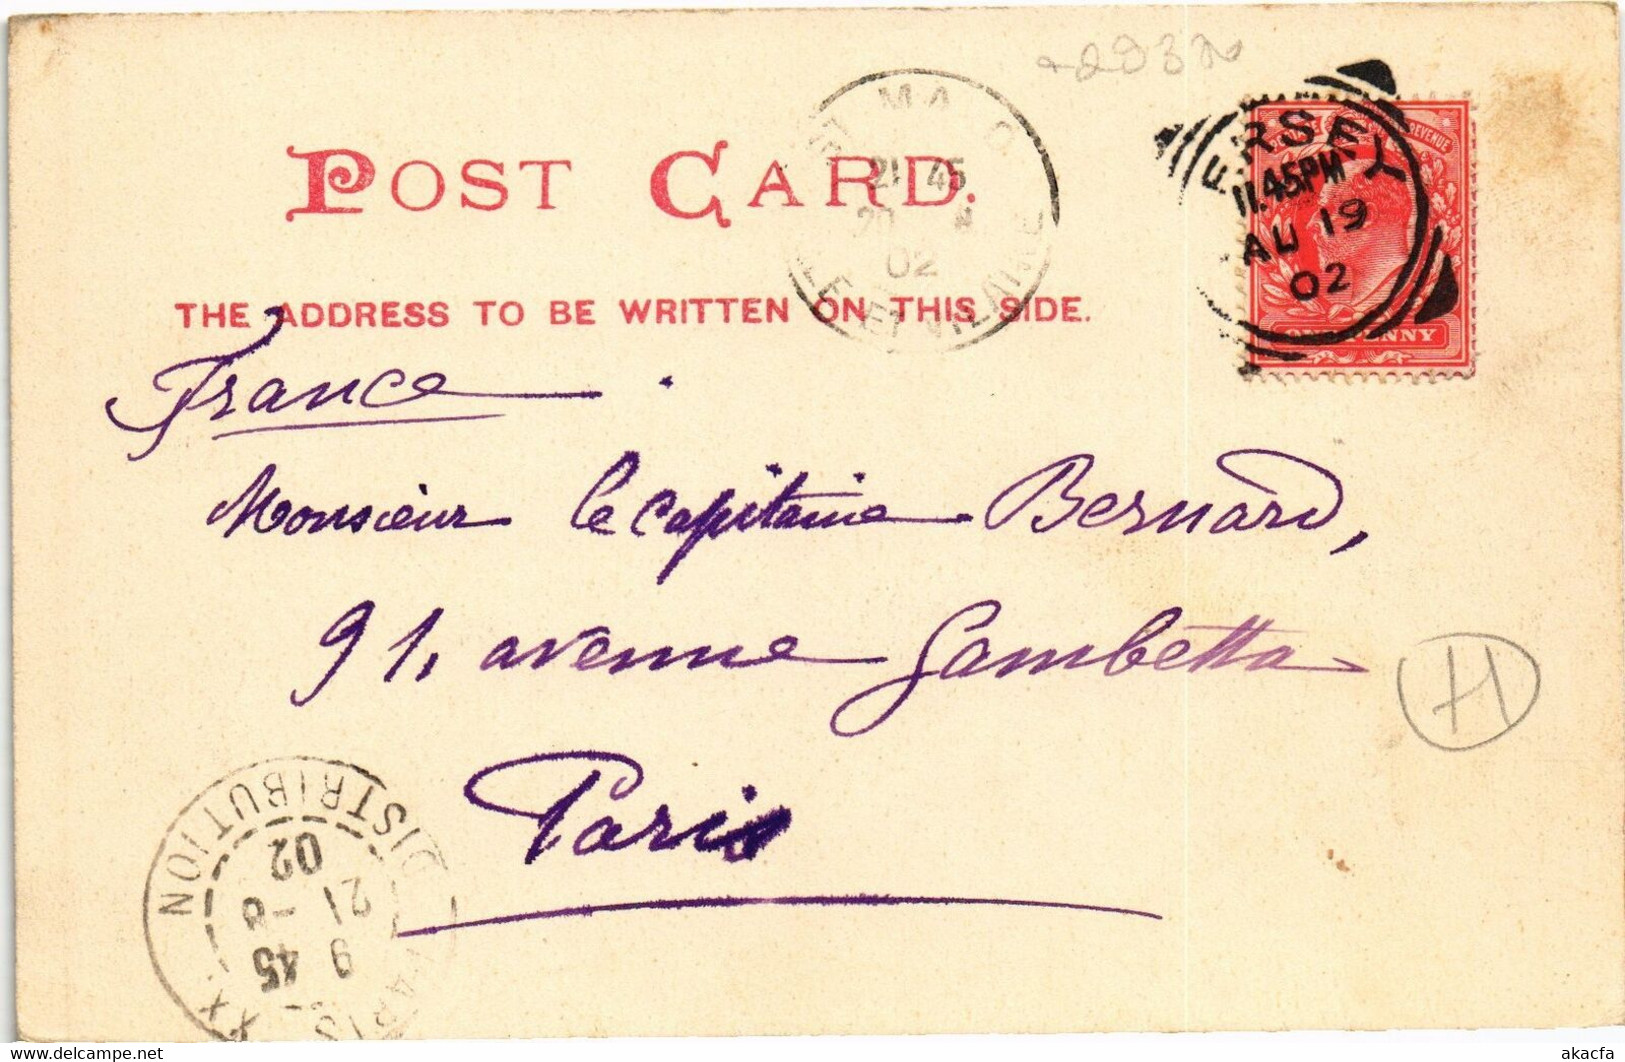 POST CARD.
THE ADDRESS TO BE WRITTEN ON THIS SIDE.
ERSEY
11.45PM
AU 19
02
REVENUE
ONE PENNY
21 45
20
02
ILLE-ET-VILAINE
France.
Monsieur le capitaine Bernard,
91, avenue Gambetta
Paris
H
PARIS XX. DISTRIBUTION
9 45
21 -8
02
akacfa